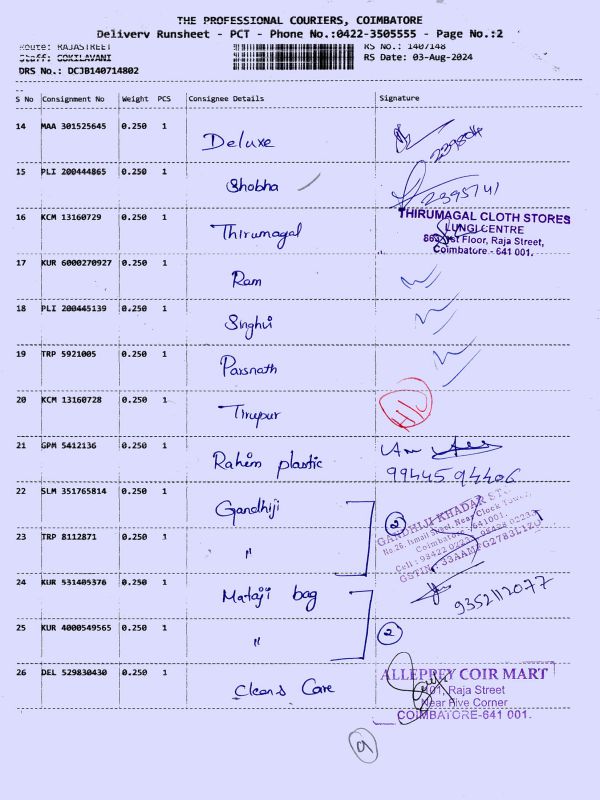 THE PROFESSIONAL COURIERS, COIMBATORE
Delivery Runsheet - PCT - Phone No.:0422-3505555 - Page No.:2
Route: RAJASTREET
RS No.: 1407148
Staff: GOKILAVANI
RS Date: 03-Aug-2024
DRS No.: DCJB140714802
S No Consignment No Weight PCS Consignee Details Signature
14 MAA 301525645 0.250 1 Deluxe
15 PLI 200444865 0.250 1 Shobha 2395741
16 KCM 13160729 0.250 1 Thirumagal
THIRUMAGAL CLOTH STORES
LUNGI CENTRE
1st Floor, Raja Street,
Coimbatore - 641 001.
17 KUR 6000270927 0.250 1 Ram
18 PLI 200445139 0.250 1 Singhvi
19 TRP 5921005 0.250 1 Parsnath
20 KCM 13160728 0.250 1 Tirupur
21 GPM 5412136 0.250 1 Rahim plastic
99445 94406
22 SLM 351765814 0.250 1 Gandhiji 2
GANDHIJI KHADAR
No.26, Ismail Street, Near Clock Tower,
Coimbatore - 641001.
23 TRP 8112871 0.250 1 "
24 KUR 531405376 0.250 1 Mataji bag 9352112077
25 KUR 4000549565 0.250 1 " 2
26 DEL 529830430 0.250 1 Clean & Care
ALLEPREY COIR MART
101, Raja Street
Near Five Corner
COIMBATORE-641 001.
9